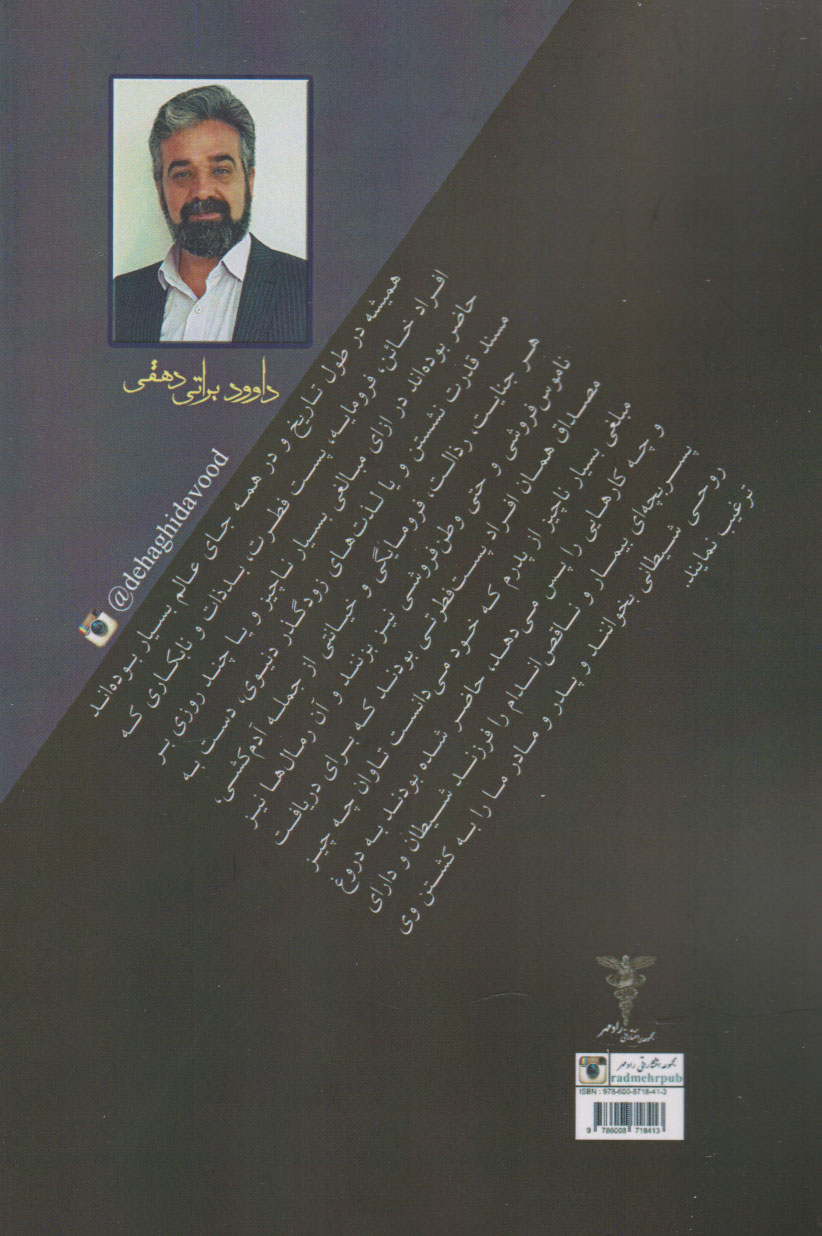 داوود براتی دهقی
@dehaghidavood
همیشه در طول تاریخ و در همه جای عالم بسیار بوده‌اند
افراد خائن، فرومایه، پست فطرت، بدذات و نابکاری که
حاضر بوده‌اند در ازای مبالغی بسیار ناچیز و یا چند روزی بر
مسند قدرت نشستن و یا لذت‌های زودگذر دنیوی، دست به
هر جنایت، رذالت، فرومایگی و خیانتی از جمله آدم‌کشی،
ناموس‌فروشی و حتی وطن‌فروشی نیز بزنند و آن رمال‌ها نیز
مصداق همان افراد پست‌فطرتی بودند که برای دریافت
مبلغی بسیار ناچیز از پدرم که خود می‌دانست تاوان چه چیز
و چه کارهایی را پس می‌دهد، حاضر شده بودند به دروغ
پسربچه‌ای بیمار و ناقص‌اندام را فرزند شیطان و دارای
روحی شیطانی بخوانند و پدر و مادر ما را به کشتن وی
ترغیب نمایند.
مجموعه انتشاراتی رادمهر
مجموعه انتشاراتی رادمهر
radmehrpub
ISBN : 978-600-8718-41-3
9 786008 718413